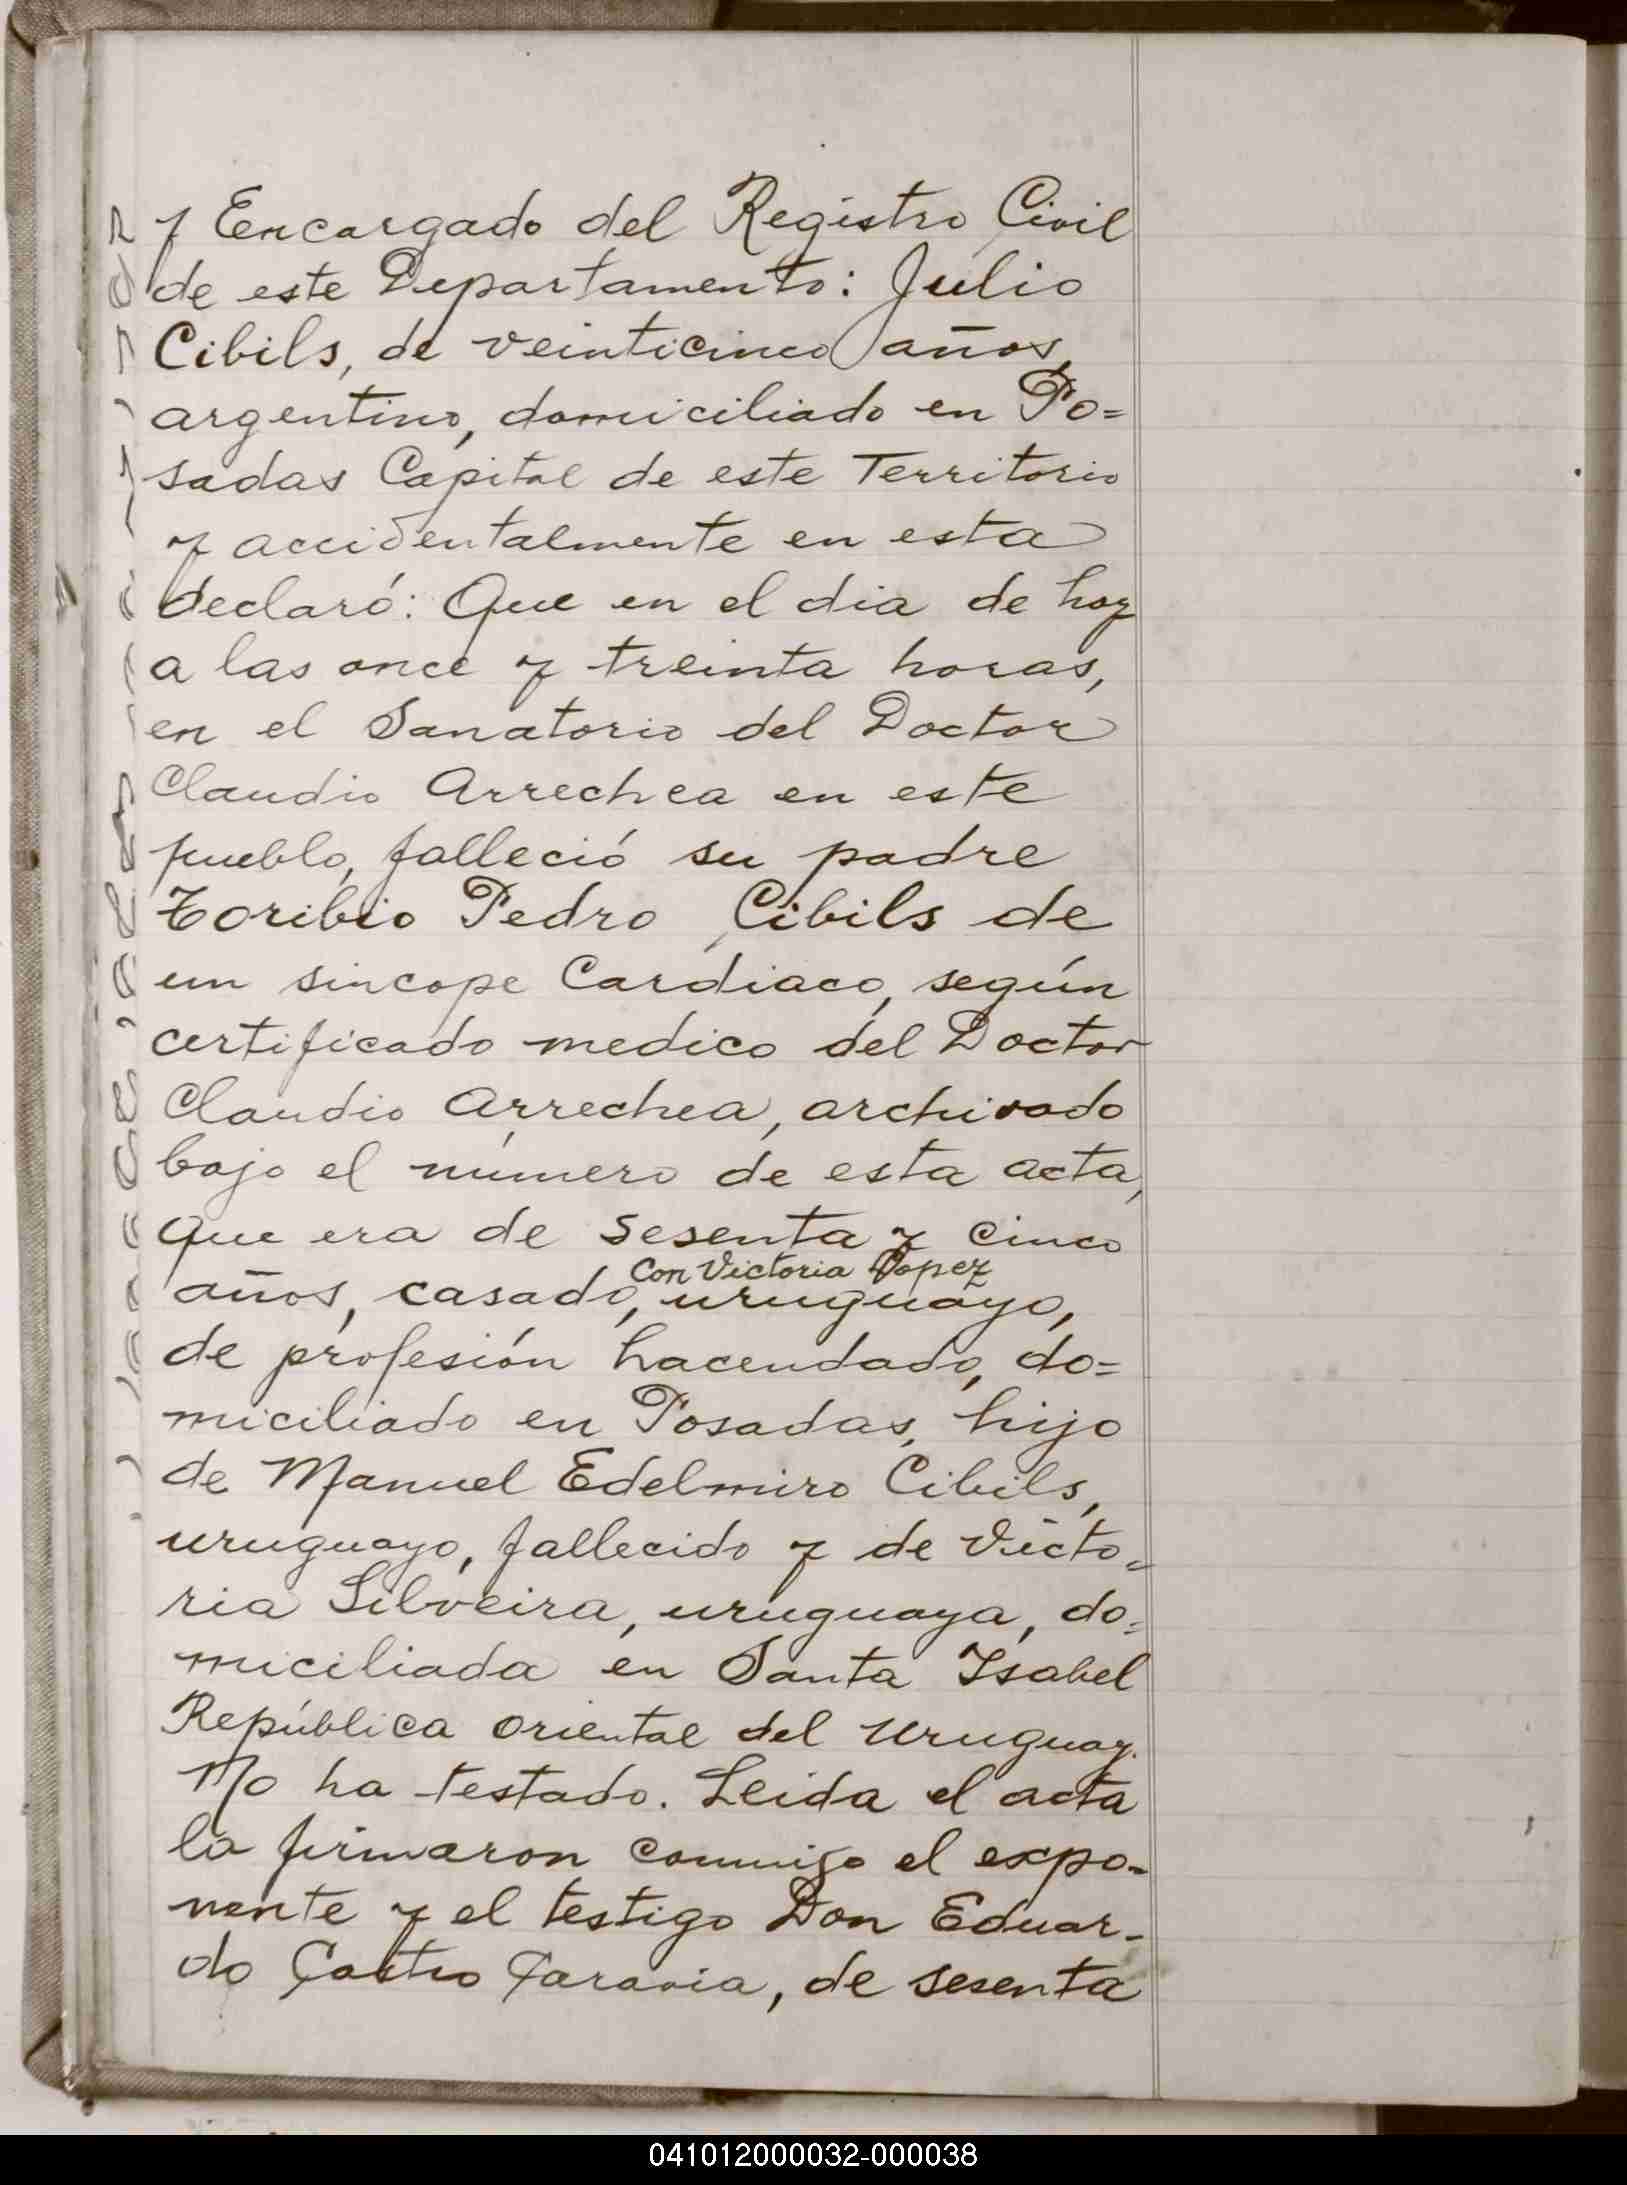 y Encargado del Registro Civil
de este Departamento: Julio
Cibils, de veinticinco años,
argentino, domiciliado en Po=
sadas Capital de este Territorio
y accidentalmente en esta
declaró: Que en el dia de hoy
a las once y treinta horas,
en el Sanatorio del Doctor
Claudio Arrechea en este
pueblo, falleció su padre
Toribio Pedro Cibils de
un sincope Cardiaco, según
certificado medico del Doctor
Claudio Arrechea, archivado
bajo el número de esta acta,
que era de sesenta y cinco
Con Victoria Lopez
años, casado, uruguayo,
de profesión hacendado, do=
miciliado en Posadas, hijo
de Manuel Edelmiro Cibils,
uruguayo, fallecido y de Victo=
ria Silveira, uruguaya, do=
miciliada en Santa Isabel
República Oriental del Uruguay.
No ha testado. Leida el acta
la firmaron conmigo el expo-
nente y el testigo Don Eduar-
do Castro Saravia, de sesenta
041012000032-000038